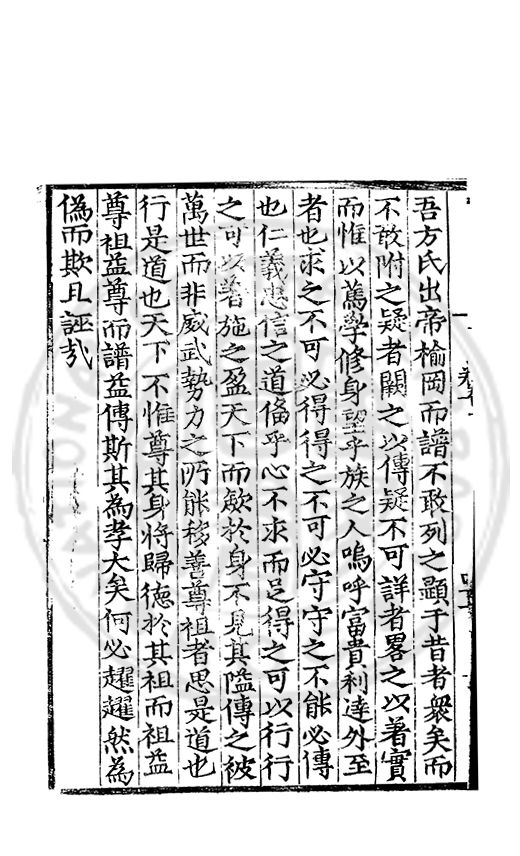 吾方氏出帝榆岡而譜不敢列之顯于昔者衆矣而
不敢附之疑者闕之以傳疑不可詳者畧之以著實
而惟以篤學修身望乎族之人嗚呼富貴利達外至
者也求之不可必得得之不可必守守之不能必傳
也仁義忠信之道俻乎心不求而足得之可以行行
之可以著施之盈天下而歛於身不見其隘傳之被
萬世而非威武勢力之所能移善尊祖者思是道也
行是道也天下不惟尊其身將歸德於其祖而祖益
尊祖益尊而譜益傳斯其為孝大矣何必趯趯然為
偽而欺且誣哉